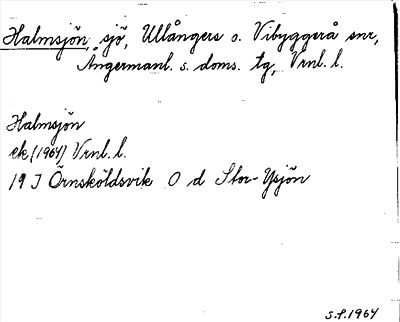 Halmsjön, sjö, Ullångers o. Vibyggerå snr,
Ångermanl. s. doms. tg, Vrnl. l.
Halmsjön
ek (1964) Vrnl. l.
19 J Örnsköldsvik O d Stor-Ysjön
S.F. 1964